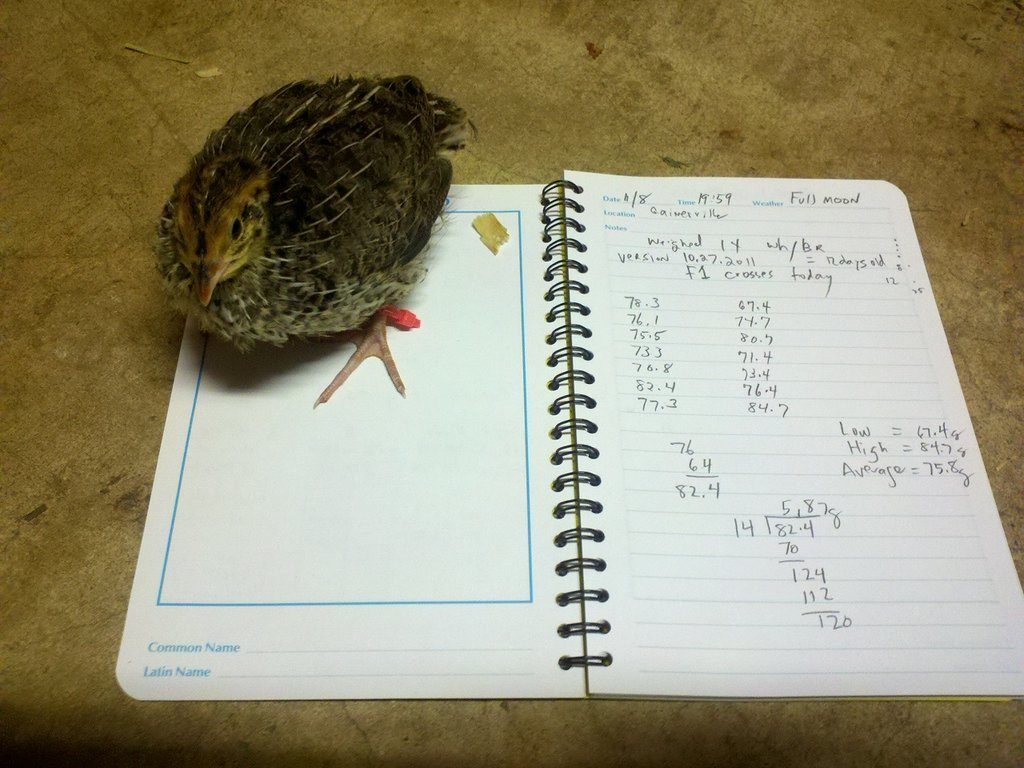 Common Name
Latin Name
Date 11/8 Time 19:59 Weather Full moon
Location Gainesville
Notes
Weighed 14 wh/BR
version 10.27.2011 = 12 days old
F1 crosses today
8
12
78.3 67.4
76.1 74.7
75.5 80.7
733 71.4
76.8 73.4
82.4 76.4
77.3 84.7
Low = 67.4g
High = 84.7g
Average = 75.8g
76
64
82.4
5.87g
14 82.4
70
124
112
120